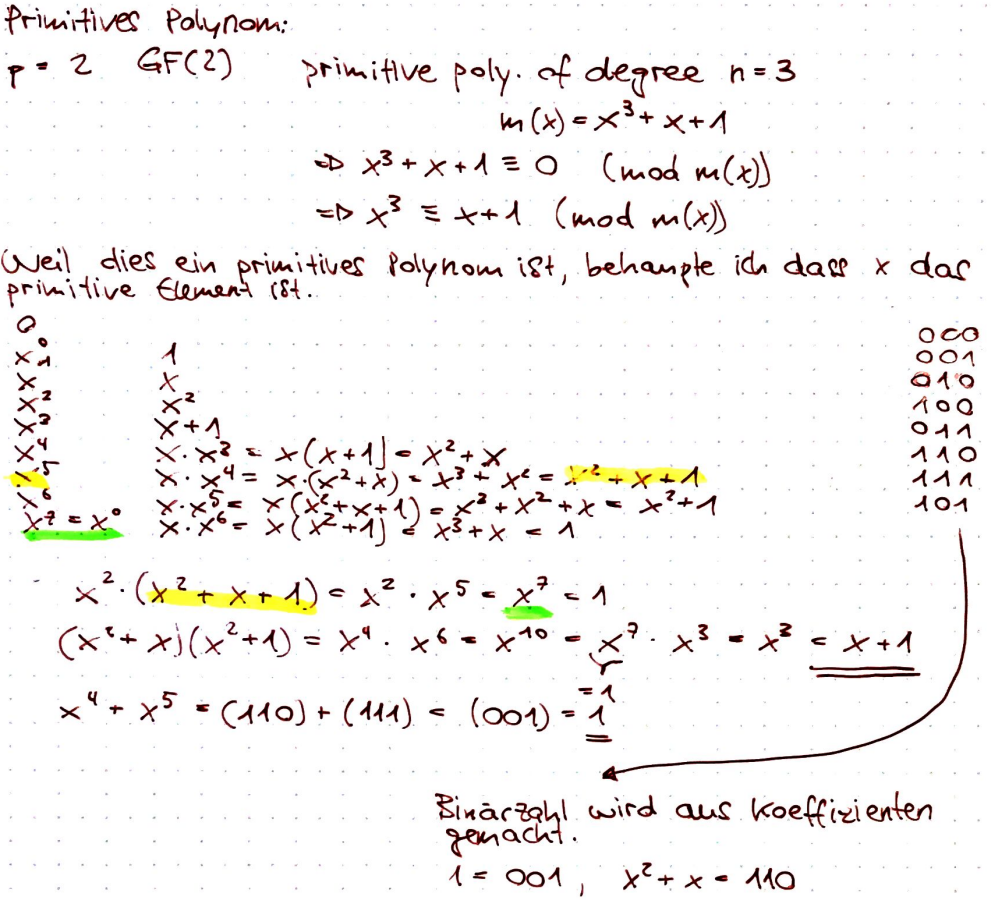 Primitives Polynom:
p = 2 GF(2) primitive poly. of degree n = 3
m(x) = x³ + x + 1
=> x³ + x + 1 ≡ 0 (mod m(x))
=> x³ ≡ x+1 (mod m(x))
Weil dies ein primitives Polynom ist, behaupte ich dass x das
primitive Element ist.
0 000
x⁰ 1 001
x¹ x 010
x² x² 100
x³ x+1 011
x⁴ x·x³ = x(x+1) = x²+x 110
x⁵ x·x⁴ = x·(x²+x) = x³+x² = x²+x+1 111
x⁶ x·x⁵ = x(x²+x+1) = x³+x²+x = x²+1 101
x⁷ = x⁰ x·x⁶ = x(x²+1) = x³+x = 1
x²·(x²+x+1) = x²·x⁵ = x⁷ = 1
(x²+x)(x²+1) = x⁴·x⁶ = x¹⁰ = x⁷·x³ = x³ = x+1
=1
x⁴ + x⁵ = (110) + (111) = (001) = 1
Binärzahl wird aus Koeffizienten
gemacht.
1 = 001, x²+x = 110